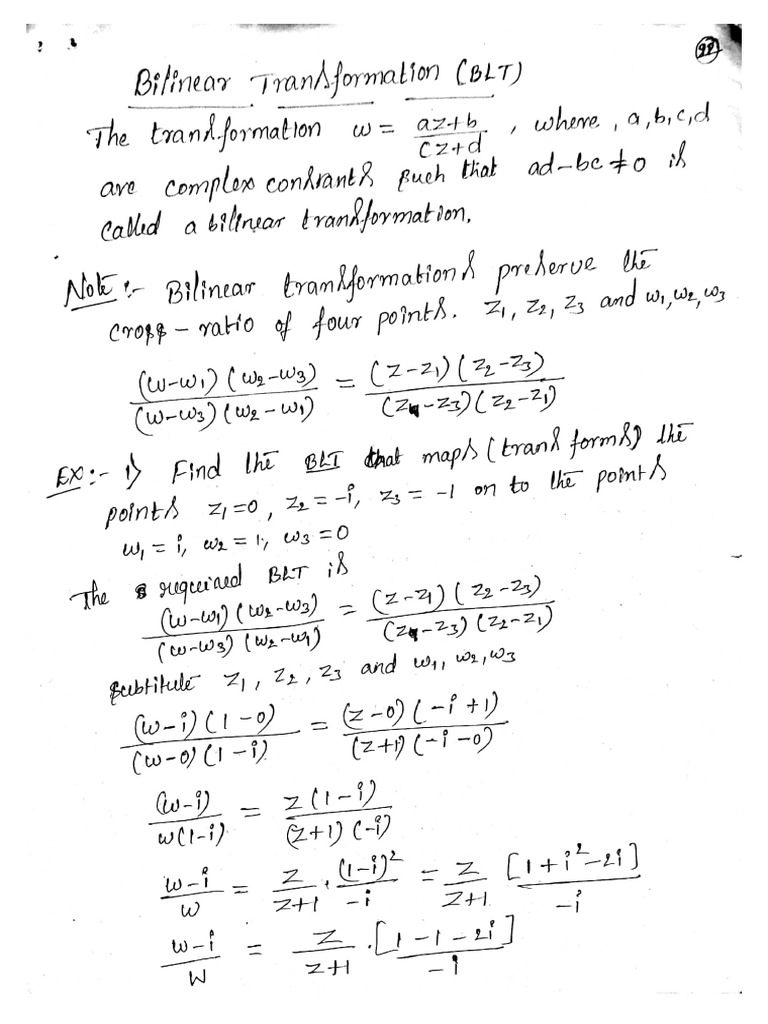 22
Bilinear Transformation (BLT)
The transformation w = az+b / cz+d , where, a,b,c,d
are complex constants such that ad-bc≠0 is
called a bilinear transformation.
Note :- Bilinear transformations preserve the
cross-ratio of four points. z1, z2, z3 and w1,w2,w3
(w-w1)(w2-w3) / (w-w3)(w2-w1) = (z-z1)(z2-z3) / (z-z3)(z2-z1)
Ex:- 1) Find the BLT that maps (transforms) the
points z1=0, z2=-i, z3=-1 on to the points
w1=i, w2=1, w3=0
The required BLT is
(w-w1)(w2-w3) / (w-w3)(w2-w1) = (z-z1)(z2-z3) / (z-z3)(z2-z1)
subtitule z1, z2, z3 and w1, w2, w3
(w-i)(1-0) / (w-0)(1-i) = (z-0)(-i+1) / (z+1)(-i-0)
(w-i) / w(1-i) = z(1-i) / (z+1)(-i)
w-i / w = z / z+1 . (1-i)² / -i = z / z+1 [1+i²-2i] / -i
w-i / w = z / z+1 . [1-1-2i] / -i